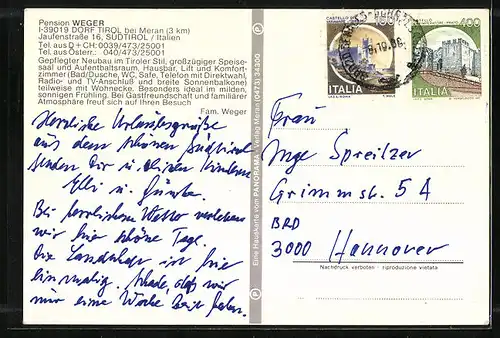 Pension WEGER
I-39019 DORF TIROL bei Meran (3 km)
Jaufenstraße 16, SÜDTIROL / Italien
Tel. aus D + CH: 0039/473/25001
Tel. aus Österr.: 040/473/25001
Gepflegter Neubau im Tiroler Stil, großzügiger Speise-
saal und Aufenthaltsraum, Hausbar, Lift und Komfort-
zimmer (Bad/Dusche, WC, Safe, Telefon mit Direktwahl,
Radio- und TV-Anschluß und breite Sonnenbalkone)
teilweise mit Wohnecke. Besonders ideal im milden,
sonnigen Frühling. Bei Gastfreundschaft und familiärer
Atmosphäre freut sich auf Ihren Besuch
Fam. Weger
Herzliche Urlaubsgrüße
aus dem schönen Südtirol
senden Dir u. Deinen Kindern
Elli u. Günter.
Bei herrlichem Wetter verleben
wir hier schöne Tage.
Die Landschaft ist hier
einmalig. Schade, daß wir
nur eine Woche Zeit haben.
Eine Hauskarte vom PANORAMA-Verlag Meran (0473) 34300
CASTELLO
ITALIA
400
ITALIA
Frau
Inge Spreitzer
Grimmstr. 5A
BRD
3000 Hannover
Nachdruck verboten - riproduzione vietata